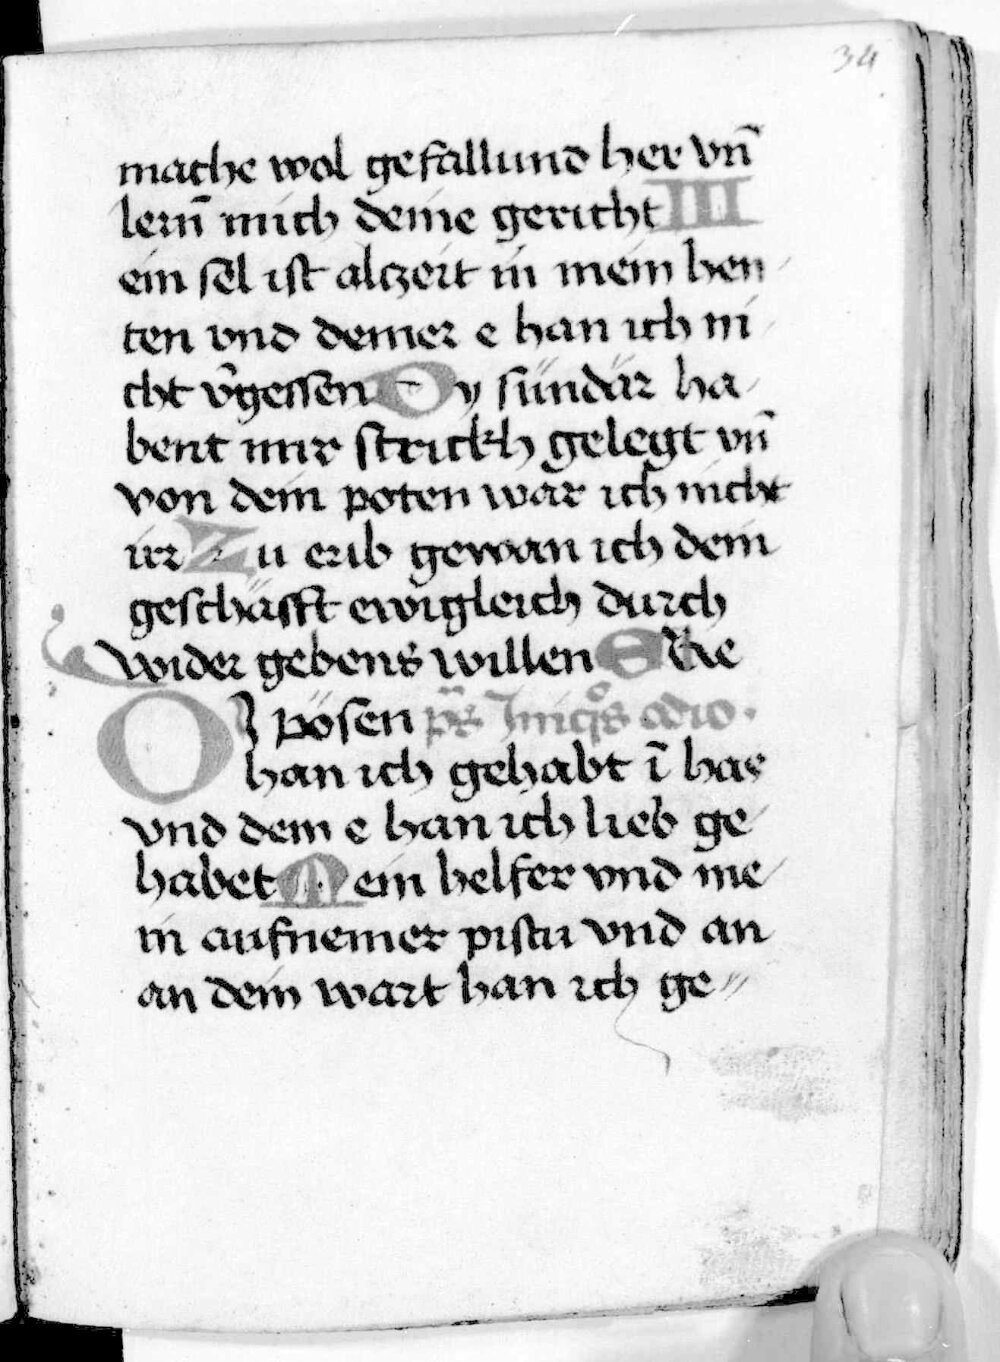 34
mache wol gefallund her vn̄
lern̄ mich deine gericht M
ein sel ist alczeit in mein hen
ten vnd deiner e han ich ni
cht v̄gessen Dy sündär ha
bent mir strickh gelegt vn̄
von dein poten war ich nicht
irr Zu erib gewan ich dein
geschäfft ewigleich durch
wider gebens willen
DJ pösen ps Iniqͦs odio.
han ich gehabt ī has
vnd dein e han ich lieb ge
habet Mein helfer vnd me
in aufnemer pistu vnd an
an dein wart han ich ge